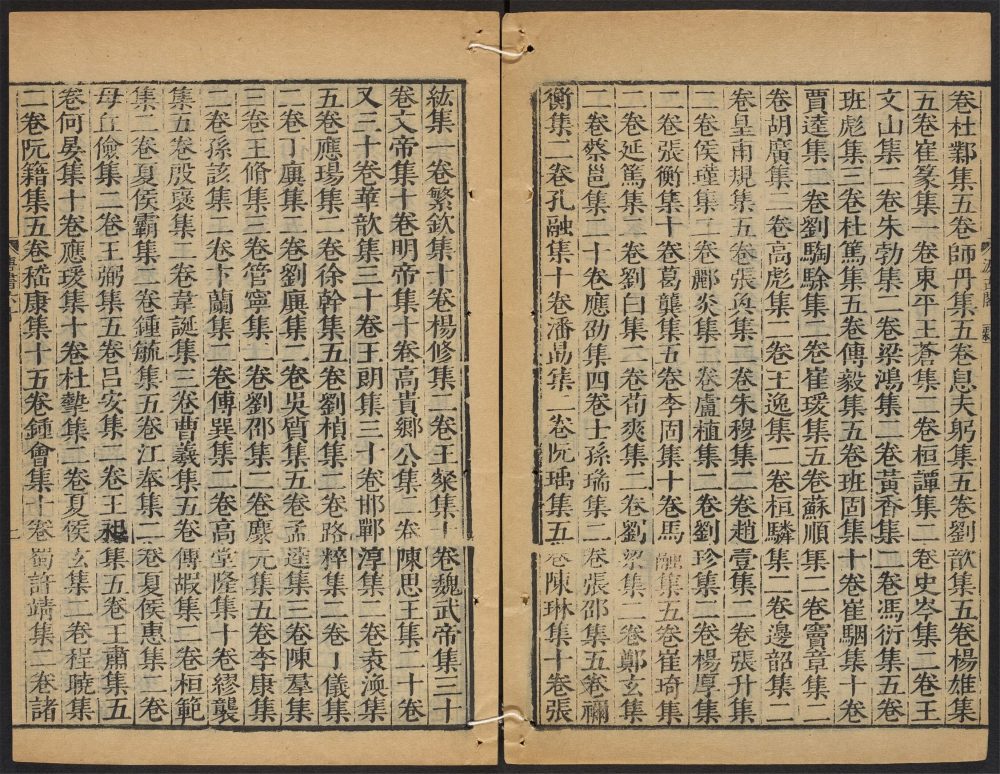 卷杜鄴集五卷師丹集五卷息夫躬集五卷劉歆集五卷楊雄集
五卷崔篆集一卷東平王蒼集二卷桓譚集二卷史岑集二卷王
文山集二卷朱勃集二卷梁鴻集二卷黃香集二卷馮衍集五卷
班彪集三卷杜篤集五卷傅毅集五卷班固集十卷崔駰集十卷
賈逵集二卷劉騊駼集二卷崔瑗集五卷蘇順集二卷竇章集二
卷胡廣集二卷高彪集二卷王逸集二卷桓驎集二卷邊韶集二
卷皇甫規集五卷張奐集二卷朱穆集二卷趙壹集二卷張升集
二卷侯瑾集二卷酈炎集二卷盧植集二卷劉珍集二卷楊厚集
二卷張衡集十卷葛龔集五卷李固集十卷馬融集五卷崔琦集
二卷延篤集二卷劉白集二卷荀爽集二卷劉梁集二卷鄭玄集
二卷蔡邕集二十卷應劭集四卷士孫瑞集二卷張邵集五卷禰
衡集二卷孔融集十卷潘勗集二卷阮瑀集五卷陳琳集十卷張
紘集一卷繁欽集十卷楊修集二卷王粲集十卷魏武帝集三十
卷文帝集十卷明帝集十卷高貴鄉公集二卷陳思王集二十卷
又三十卷華歆集三十卷王朗集三十卷邯鄲淳集二卷袁渙集
五卷應瑒集二卷徐幹集五卷劉楨集二卷路粹集二卷丁儀集
二卷丁廙集二卷劉廙集二卷吳質集五卷孟達集三卷陳羣集
三卷王脩集三卷管寧集二卷劉邵集二卷麋元集五卷李康集
二卷孫該集二卷卞蘭集二卷傅巽集二卷高堂隆集十卷繆襲
集五卷殷裒集二卷韋誕集三卷曹羲集五卷傅嘏集二卷桓範
集二卷夏侯霸集二卷鍾毓集五卷江奉集二卷夏侯惠集二卷
毋丘儉集二卷王弼集五卷呂安集二卷王昶集五卷王肅集五
卷何晏集十卷應瑗集十卷杜摯集二卷夏侯玄集二卷程曉集
二卷阮籍集五卷嵇康集十五卷鍾會集十卷蜀許靖集二卷諸